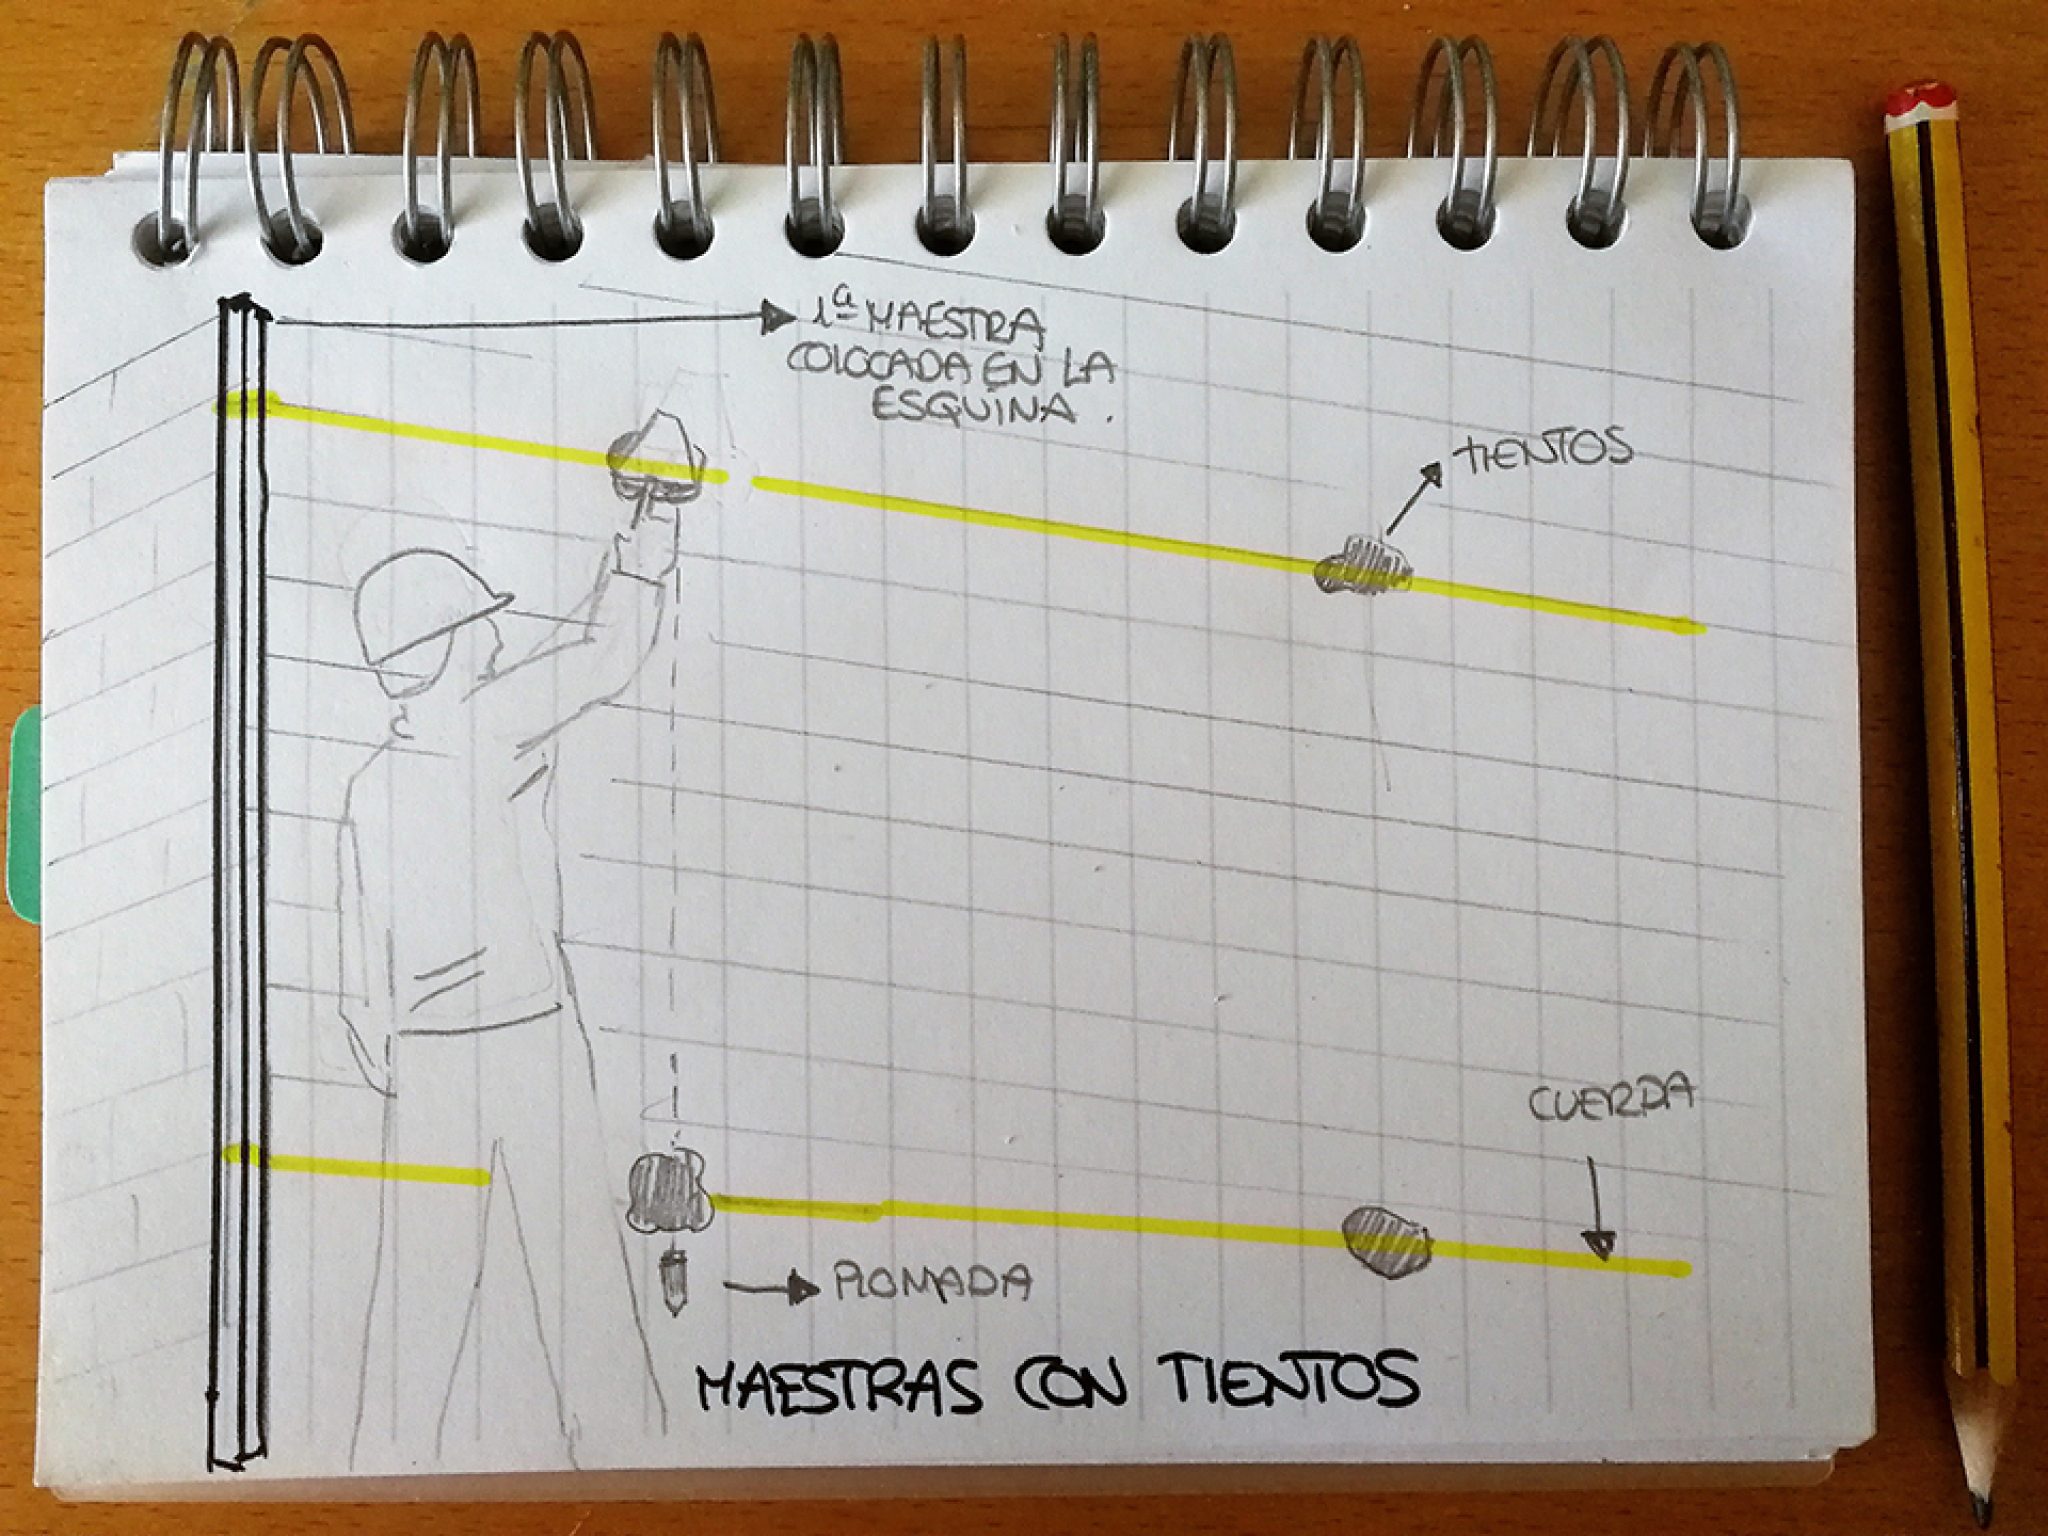 1ª MAESTRA
COLOCADA EN LA
ESQUINA.
TIENTOS
CUERDA
PLOMADA
MAESTRAS CON TIENTOS